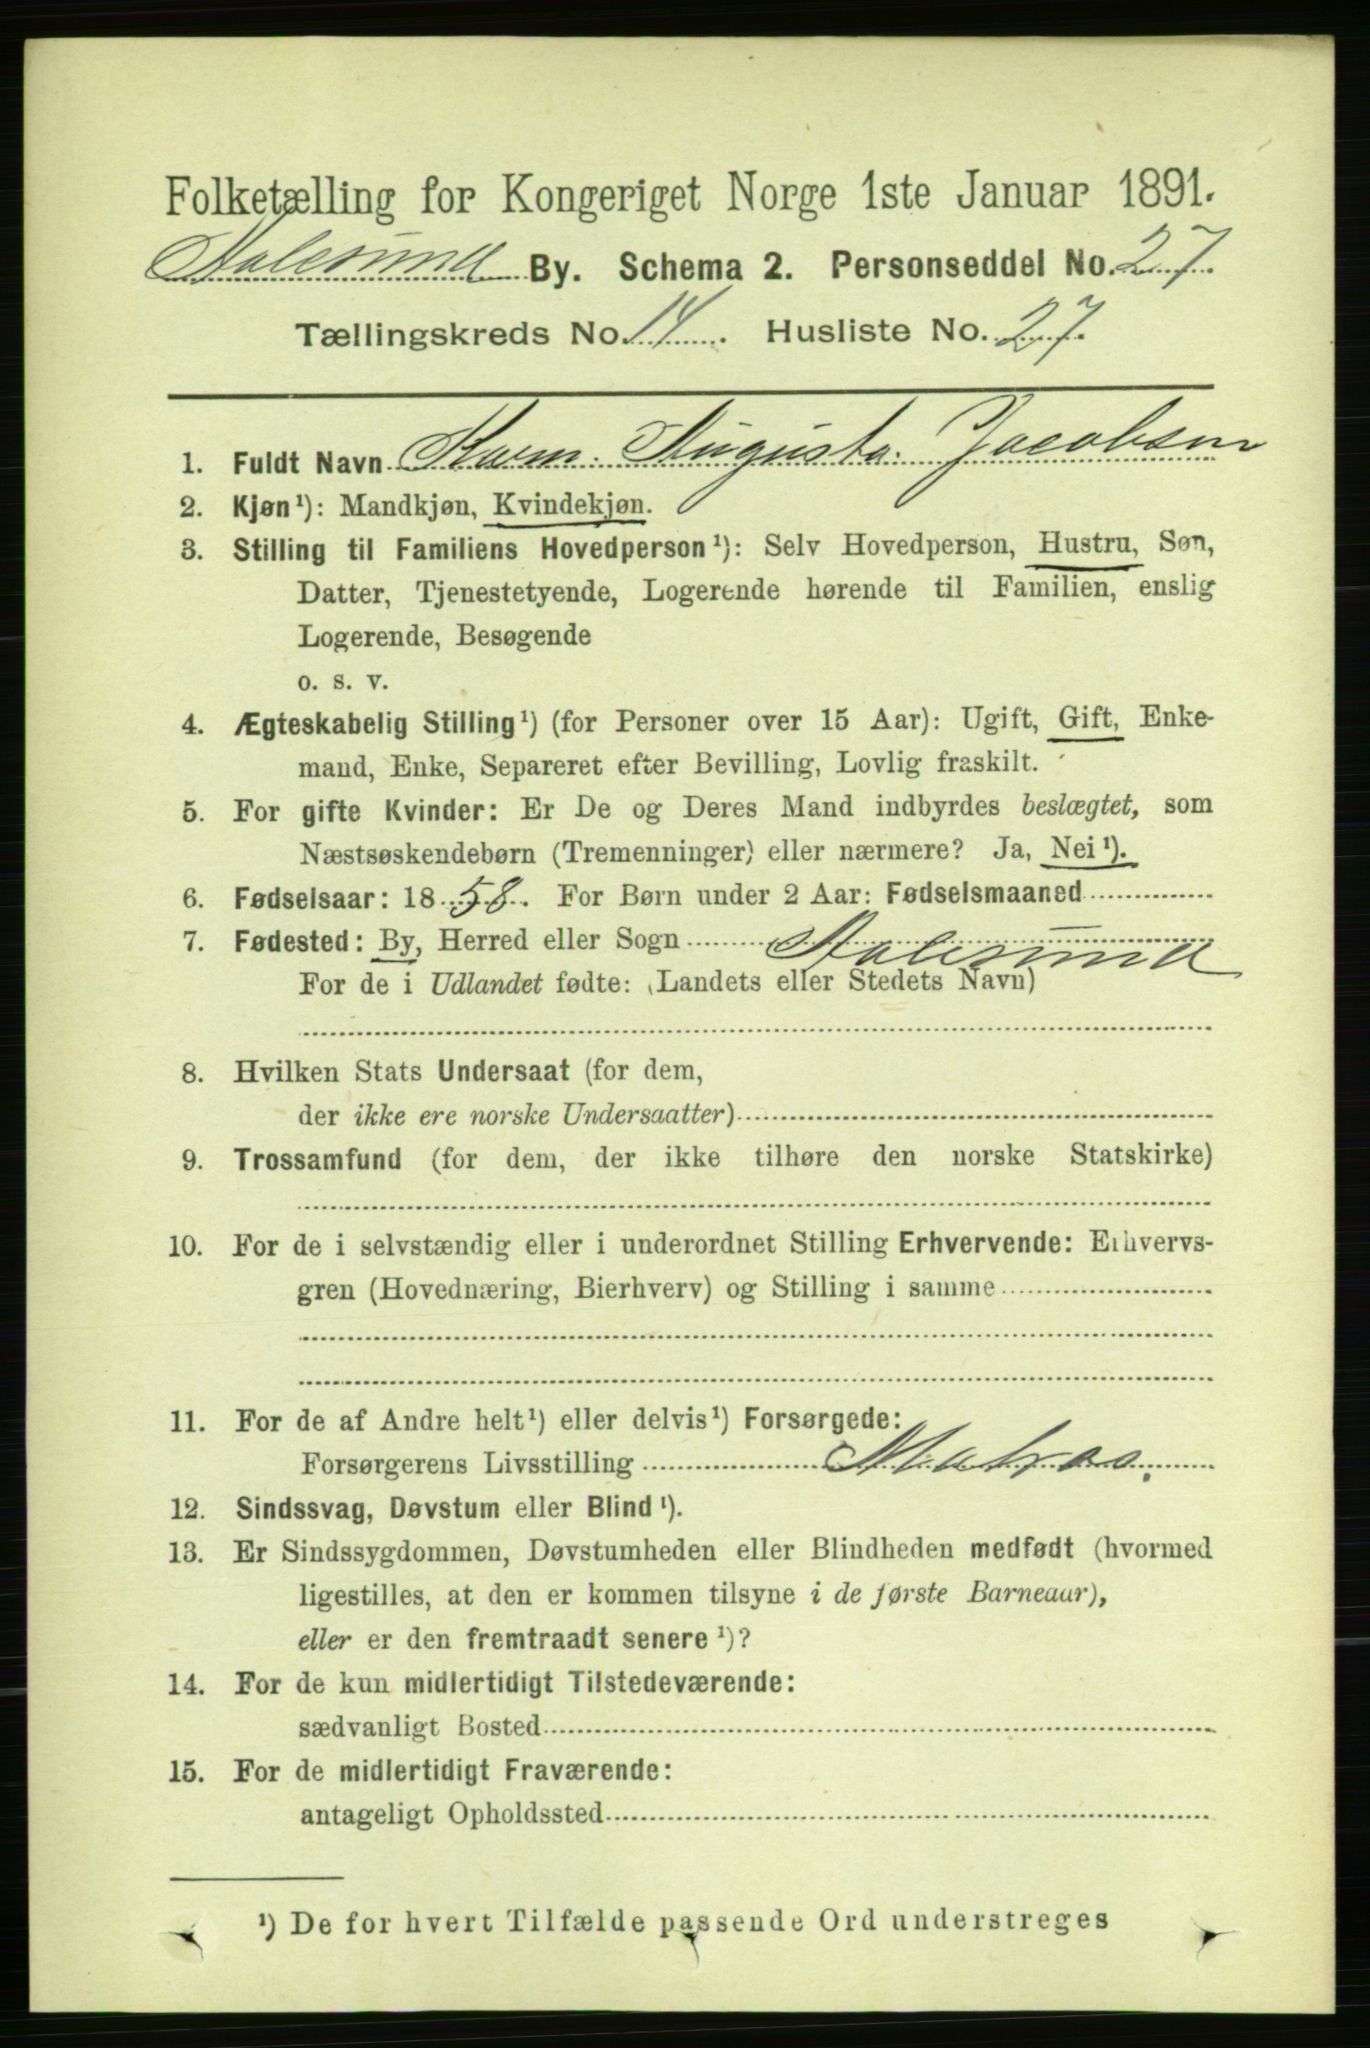 Folketælling for Kongeriget Norge 1ste Januar 1891.
Aalesund By. Schema 2. Personseddel No. 27.
Tællingskreds No. 14. Husliste No. 27.
1. Fuldt Navn Karen Augusta Jacobsen
2. Kjøn¹): Mandkjøn, Kvindekjøn.
3. Stilling til Familiens Hovedperson¹): Selv Hovedperson, Hustru, Søn,
Datter, Tjenestetyende, Logerende hørende til Familien, enslig
Logerende, Besøgende
o. s. v.
4. Ægteskabelig Stilling¹) (for Personer over 15 Aar): Ugift, Gift, Enke-
mand, Enke, Separeret efter Bevilling, Lovlig fraskilt.
5. For gifte Kvinder: Er De og Deres Mand indbyrdes beslægtet, som
Næstsøskendebørn (Tremenninger) eller nærmere? Ja, Nei¹).
6. Fødselsaar: 1858. For Børn under 2 Aar: Fødselsmaaned
7. Fødested: By, Herred eller Sogn Aalesund
For de i Udlandet fødte: (Landets eller Stedets Navn)
8. Hvilken Stats Undersaat (for dem,
der ikke ere norske Undersaatter)
9. Trossamfund (for dem, der ikke tilhøre den norske Statskirke)
10. For de i selvstændig eller i underordnet Stilling Erhvervende: Erhvervs-
gren (Hovednæring, Bierhverv) og Stilling i samme
11. For de af Andre helt¹) eller delvis¹) Forsørgede:
Forsørgerens Livsstilling Matros.
12. Sindssvag, Døvstum eller Blind¹).
13. Er Sindssygdommen, Døvstumheden eller Blindheden medfødt (hvormed
ligestilles, at den er kommen tilsyne i de første Barneaar),
eller er den fremtraadt senere¹)?
14. For de kun midlertidigt Tilstedeværende:
sædvanligt Bosted
15. For de midlertidigt Fraværende:
antageligt Opholdssted
¹) De for hvert Tilfælde passende Ord understreges